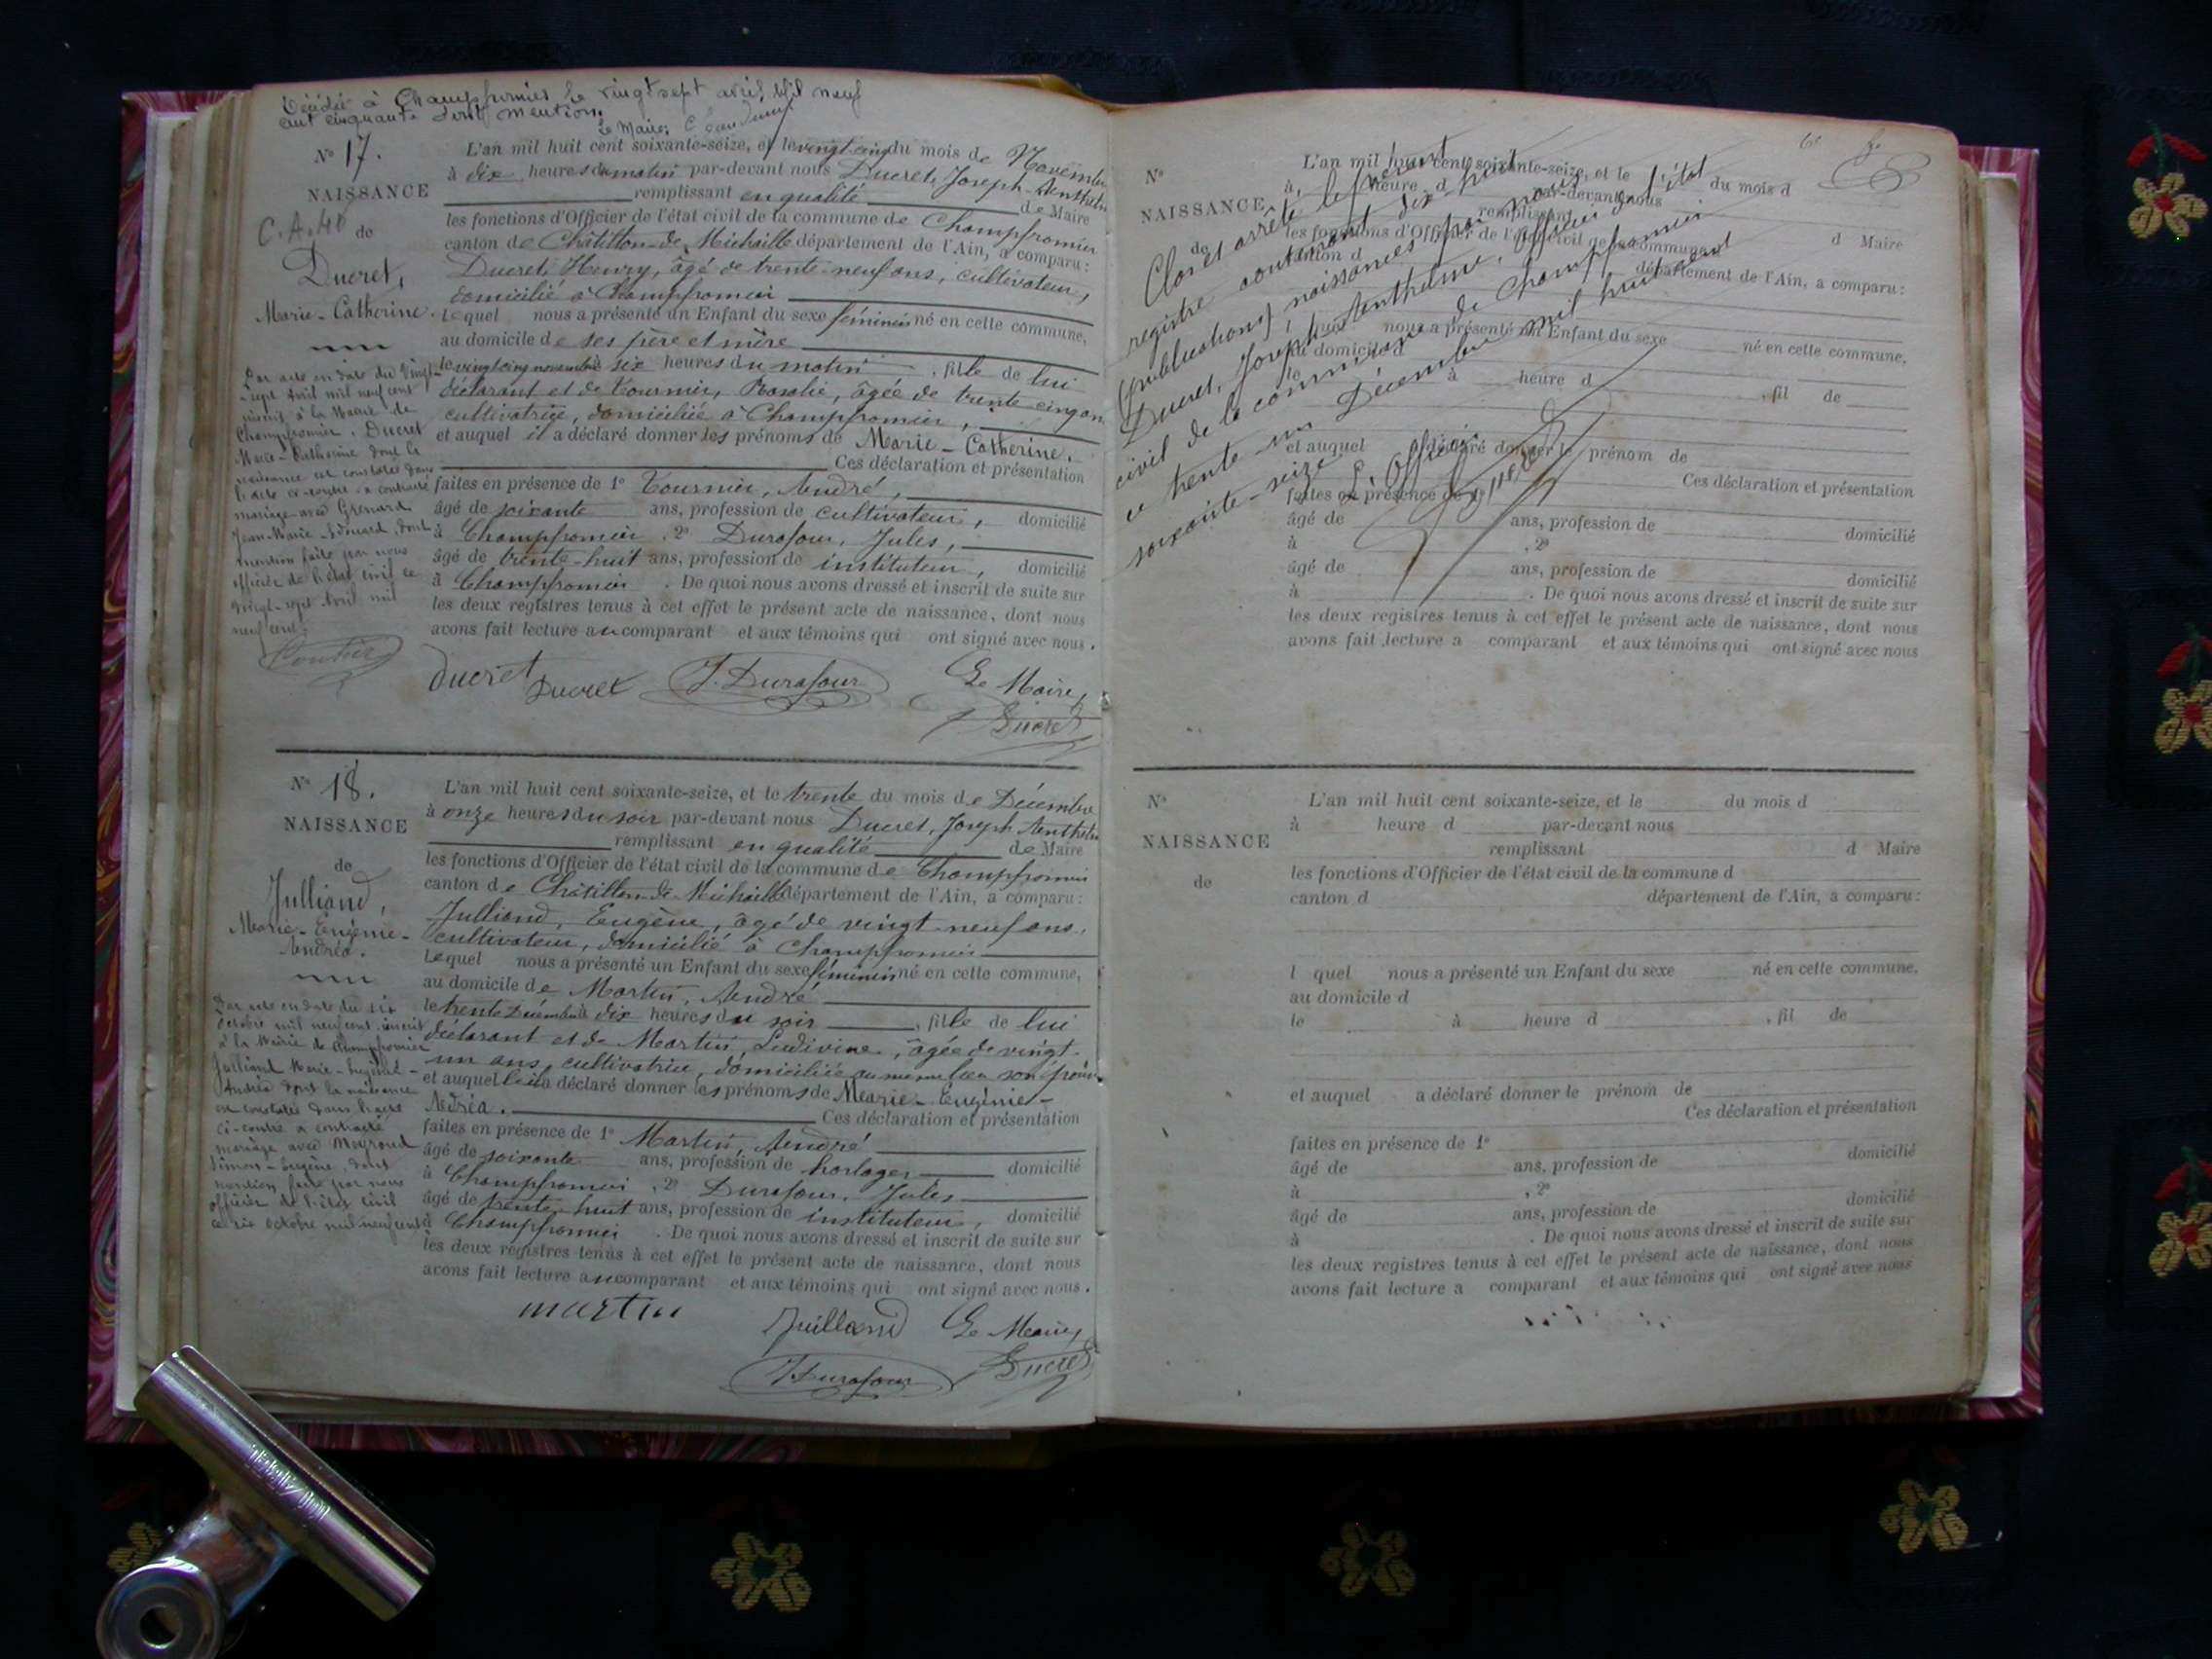 Décédée à Champfromier le vingt sept avril mil neuf
cent cinquante Dont mention.
Le Maire,
N° 17.
NAISSANCE
C.A. 40 de
Ducret,
Marie-Catherine.
L'an mil huit cent soixante-seize, et le vingt cinq du mois de Novembre
à dix heures du matin par-devant nous Ducret, Joseph-Anthelme
remplissant en qualité de Maire
les fonctions d'Officier de l'état civil de la commune de Champfromier
canton de Châtillon-de-Michaille département de l'Ain, a comparu:
Ducret, Henry, âgé de trente-neuf ans, cultivateur,
domicilié à Champfromier
Lequel nous a présenté un Enfant du sexe féminin né en cette commune,
au domicile de ses père et mère
le vingt cinq novembre à six heures du matin, fille de lui
déclarant et de Tournier, Rosalie, âgée de trente-cinq ans
cultivatrice, domiciliée à Champfromier,
et auquel il a déclaré donner les prénoms de Marie-Catherine.
Ces déclaration et présentation
faites en présence de 1° Tournier, André,
âgé de soixante ans, profession de cultivateur, domicilié
à Champfromier, 2° Durafour, Jules,
âgé de trente-huit ans, profession de instituteur, domicilié
à Champfromier. De quoi nous avons dressé et inscrit de suite sur
les deux registres tenus à cet effet le présent acte de naissance, dont nous
avons fait lecture au comparant et aux témoins qui ont signé avec nous.
Par acte en date du vingt-
sept Avril mil neuf cent
inscrit à la Mairie de
Champfromier, Ducret
Marie-Catherine dont la
naissance est constatée dans
l'acte ci-contre a contracté
mariage avec Grenard
Jean-Marie-Edouard, dont
mention faite par nous
officier de l'état civil ce
vingt-sept Avril mil
neuf cent.
ducret Ducret J. Durafour Le Maire,
Ducret
N° 18.
NAISSANCE
de
Julliand,
Marie-Eugénie-
Andréa.
L'an mil huit cent soixante-seize, et le trente du mois de Décembre
à onze heures du soir par-devant nous Ducret, Joseph Anthelme
remplissant en qualité de Maire
les fonctions d'Officier de l'état civil de la commune de Champfromier
canton de Châtillon-de-Michaille département de l'Ain, a comparu:
Julliand, Eugène, âgé de vingt-neuf ans,
cultivateur, domicilié à Champfromier
Lequel nous a présenté un Enfant du sexe féminin né en cette commune,
au domicile de Martin, André
le trente Décembre à dix heures du soir, fille de lui
déclarant et de Martin, Ludivine, âgée de vingt-
un ans, cultivatrice, domiciliée au même lieu son
et auquel il a déclaré donner les prénoms de Marie-Eugénie-
Andréa. Ces déclaration et présentation
faites en présence de 1° Martin, André
âgé de soixante ans, profession de horloger domicilié
à Champfromier, 2° Durafour, Jules
âgé de trente-huit ans, profession de instituteur, domicilié
à Champfromier. De quoi nous avons dressé et inscrit de suite sur
les deux registres tenus à cet effet le présent acte de naissance, dont nous
avons fait lecture au comparant et aux témoins qui ont signé avec nous.
Par acte en date du six
Octobre mil neuf cent, inscrit
à la Mairie de Champfromier
Julliand Marie-Eugénie-
Andréa dont la naissance
est constatée dans l'acte
ci-contre a contracté
mariage avec
Simon-Eugène, dont
mention faite par nous
officier de l'état civil
ce six Octobre mil neuf cent
martin Juilland Le Maire,
J. Durafour Ducret
Clos et arrêté le présent
registre contenant dix-huit
naissances par nous
Ducret, Joseph Anthelme, Officier de l'état
civil de la commune de Champfromier
ce trente-un Décembre mil huit cent
soixante-seize
L'Officier
Ducret
N°
NAISSANCE
de
L'an mil huit cent soixante-seize, et le du mois d
à heure d par-devant nous
remplissant d Maire
les fonctions d'Officier de l'état civil de la commune d
canton d département de l'Ain, a comparu:
l quel nous a présenté un Enfant du sexe né en cette commune,
au domicile d
le à heure d , fil de
et auquel a déclaré donner le prénom de
Ces déclaration et présentation
faites en présence de 1°
âgé de ans, profession de domicilié
à , 2°
âgé de ans, profession de domicilié
à . De quoi nous avons dressé et inscrit de suite sur
les deux registres tenus à cet effet le présent acte de naissance, dont nous
avons fait lecture a comparant et aux témoins qui ont signé avec nous
N°
NAISSANCE
de
L'an mil huit cent soixante-seize, et le du mois d
à heure d par-devant nous
remplissant d Maire
les fonctions d'Officier de l'état civil de la commune d
canton d département de l'Ain, a comparu:
l quel nous a présenté un Enfant du sexe né en cette commune,
au domicile d
le à heure d , fil de
et auquel a déclaré donner le prénom de
Ces déclaration et présentation
faites en présence de 1°
âgé de ans, profession de domicilié
à , 2°
âgé de ans, profession de domicilié
à . De quoi nous avons dressé et inscrit de suite sur
les deux registres tenus à cet effet le présent acte de naissance, dont nous
avons fait lecture a comparant et aux témoins qui ont signé avec nous